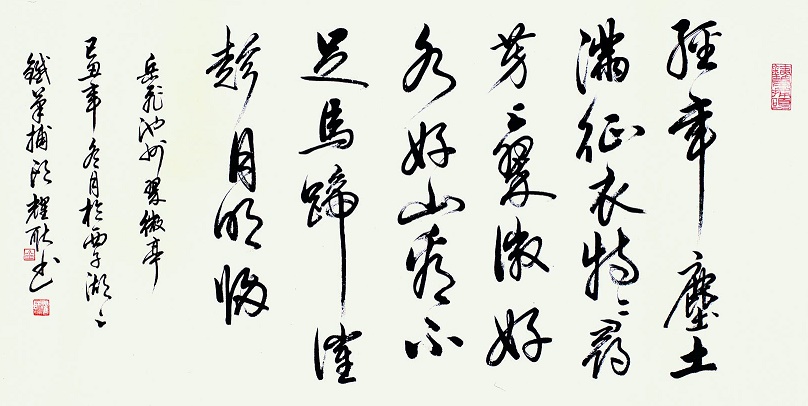 經年塵土
滿征衣特〻尋
芳上翠微好
水好山看不
足馬蹄催
趁月明歸
岳飛池州翠微亭
己丑年冬月於西子湖上
鐵筆 耀耿书